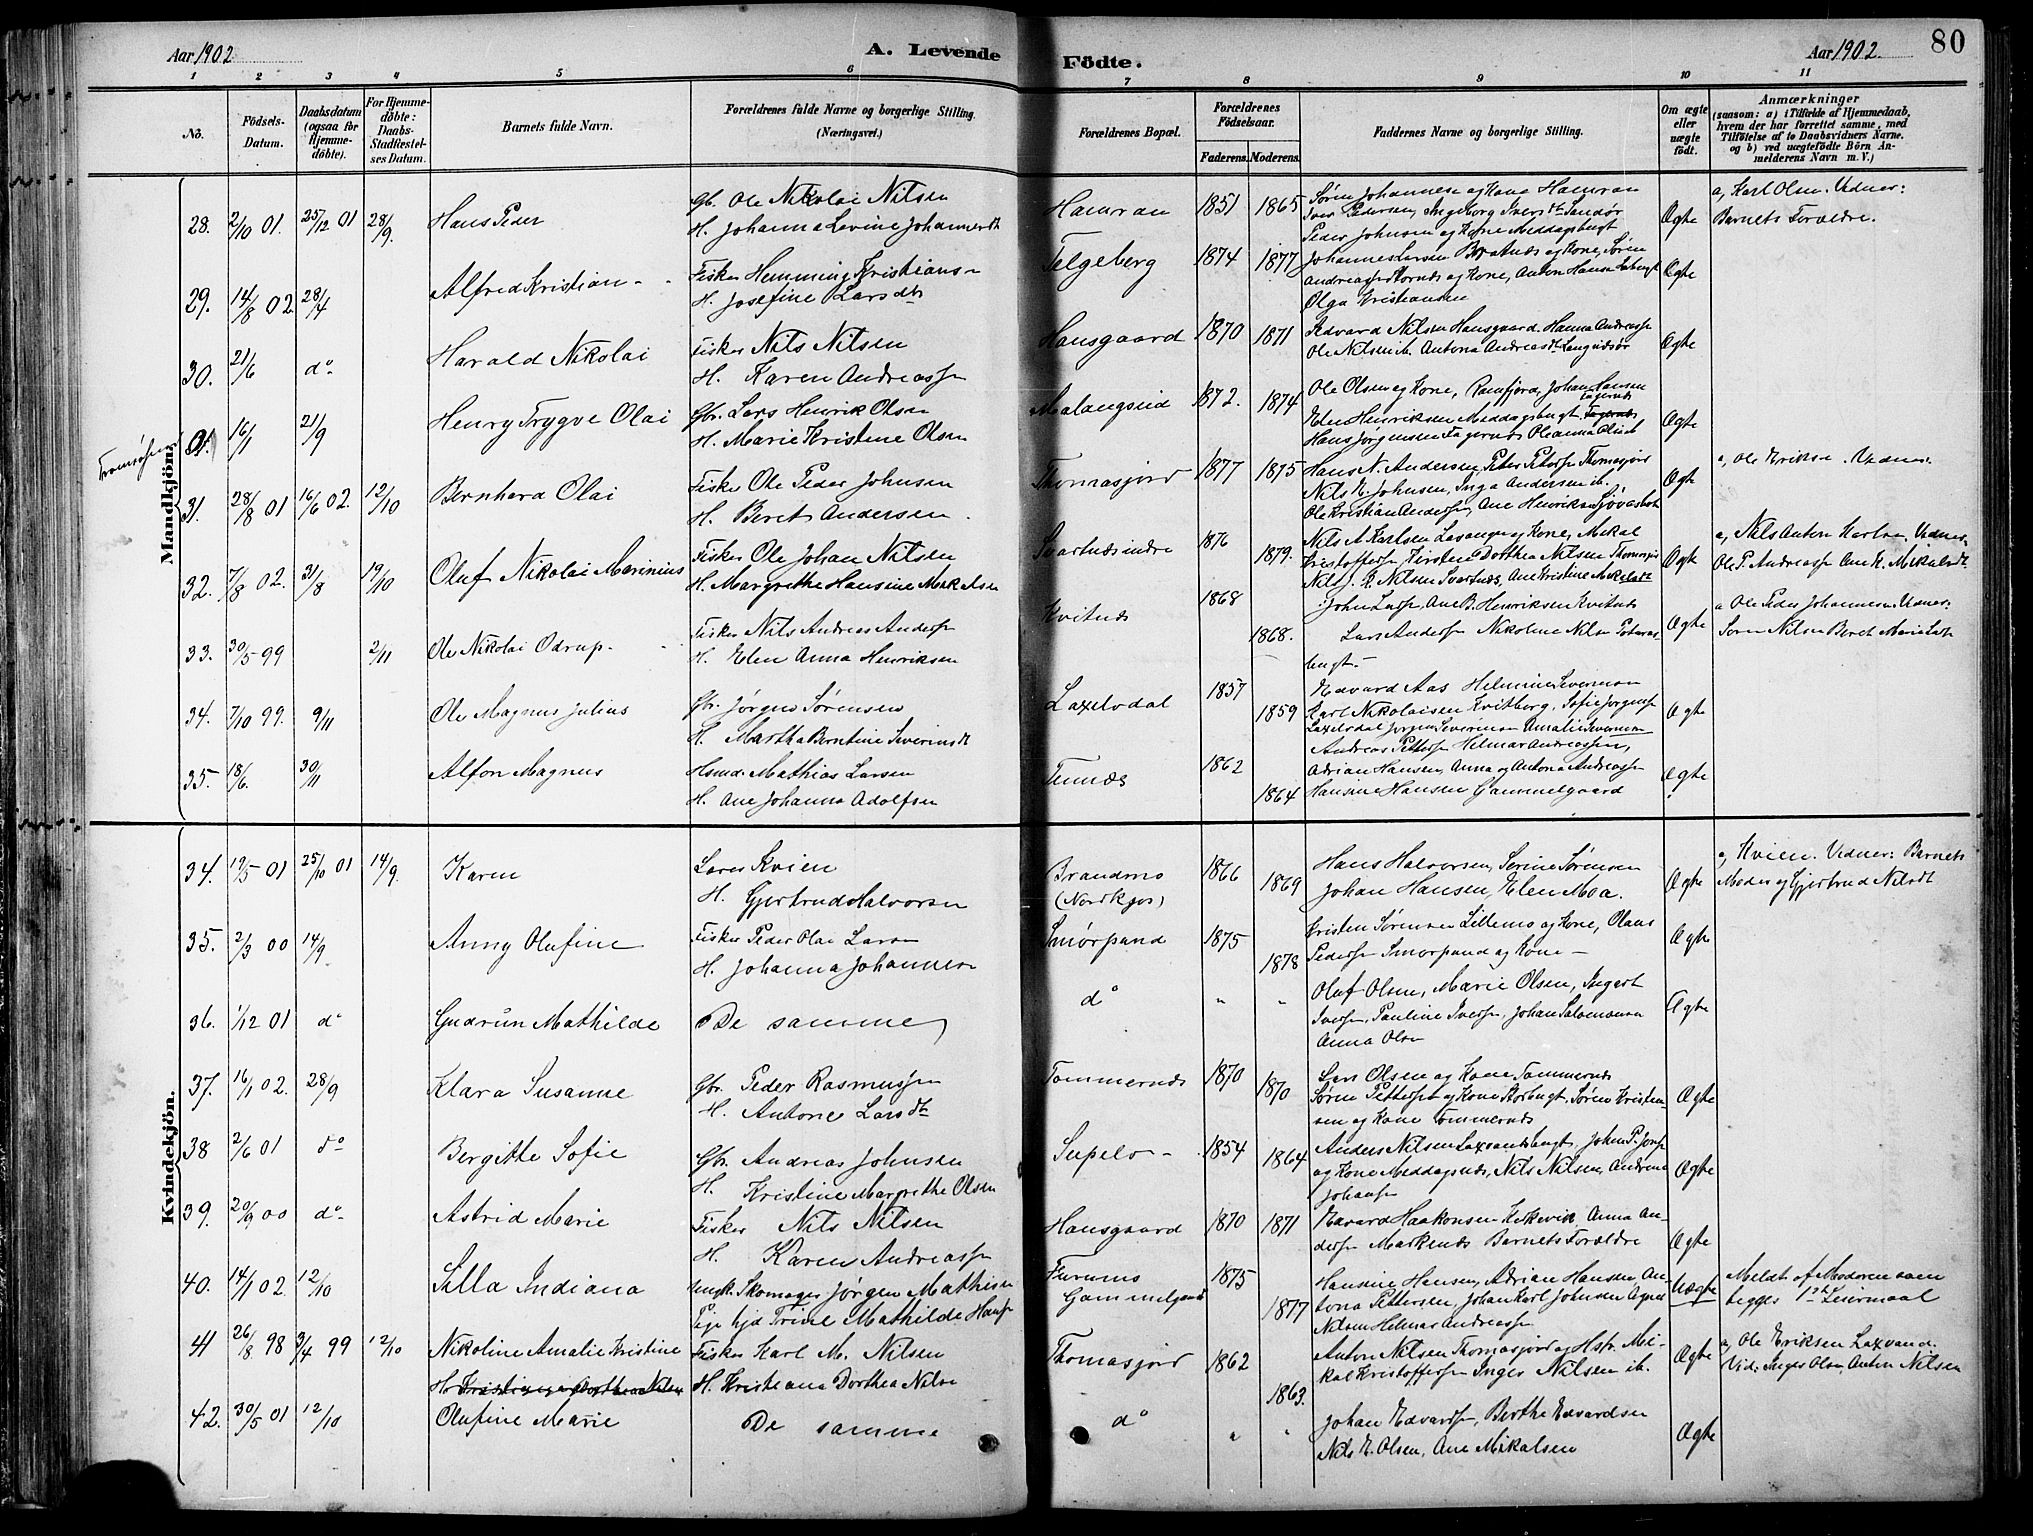 Aar 1902
A. Levende
Födte.
Aar 1902.
80
1 2 3 4 5 6 7 8 9 10 11
No.
Födsels-
Datum.
Daabsdatum
(ogsaa for
Hjemme-
döbte).
For Hjemme-
döbte:
Daabs-
Stadfestel-
ses Datum.
Barnets fulde Navn.
Forældrenes fulde Navne og borgerlige Stilling.
(Næringsvei.)
Forældrenes Bopæl.
Forældrenes
Födselsaar.
Faderens. Moderens.
Faddernes Navne og borgerlige Stilling.
Om ægte
eller
uægte
födt.
Anmærkninger
(saasom: a) i Tilfælde af Hjemmedaab,
hvem der har forrettet samme, med
Tilföielse af to Daabsvidners Navne.
og b) ved uægtefödte Börn An-
melderens Navn m. V.)
Mandkjön.
28. 2/10 01. 25/12 01 28/9. Hans Peder
Gb. Ole Nikolai Nilsen
H. Johanna Levine Johannesdt
Hamran 1851 1865
Sören Johannesen og Kone Hamran
Iver Pedersen, Ingeborg Iversdt Sandör
Peder Johnsen og Kone Meddagsbugt
Ægte
a, Karl Olsn. Vidner:
Barnets Forældre.
29. 14/8 02. 28/4 Alfred Kristian
Fisker Hemming Kristians
H. Josefine Larsdt
Telgeberg 1874 1877
Johannes Larsen og Kone, Sören
Olga Kristiansen
Ægte
30. 21/6 do Harald Nikolai
Fisker Nils Nilsen
H. Karen Andreassn
Hansgaard 1870 1871
Edvard Nilsen Hansgaard. Hanna Andreassn
Ole Nilsen ib. Antona Andreasdt Langnesör
Ægte
16/1 21/9 Henry Trygve Olai
Gbr. Lars Henrik Olsen
H. Marie Kristine Olsen
Malangseid 1872. 1874
Ole Olsen og Kone, Ramfjord, Johan Hansen
Fagernes
Elen Henriksen Meddagsbugt
Hans Jörgensen Fagernes Oleanna
Ægte
31. 28/8 01 16/6 02. 12/10 Bernhard Olai
Fisker Ole Peder Johnsen
H. Beret Andersen
Thomasjord 1877 1875
Hans N. Andersen, Peter Petersn Thomasjord
Nils E. Johnsen, Inga Andersen ib.
Ole Kristian Andersn, Ane Henriksen
Ægte
a, Ole Eriksn. Vidner:
32. 7/8 02. 31/8 19/10 Oluf Nikolai Marinius
Fisker Ole Johan Nilsen
H. Margrethe Hansine Mikalsen
Svartnes indre 1876 1879.
Nils A Karlsen og Kone, Mikal
Kristoffersn, Kirsten Dorthea Nilsen Thomasjord
Nils J. K. Nilsen Svartnes, Ane Kristine Mikalsdt
Ægte
a, Nils Anton Karlsn, Vidner:
Ole P. Andreassn Ane K. Mikalsdt.
33. 30/5 99 2/11 Ole Nikolai Odrup
Fisker Nils Andreas Andersn
H. Elen Anna Henriksen
Kvitnes 1868 1868.
John Larsn, Ane B. Henriksen Kvitnes
Lars Andersn Nikoline Nilsn
bugt.
Ægte
a Ole Peder Johannesn. Vidner:
Sören Nilsn Beret Marie Larsn
34. 7/10 99. 9/11 Ole Magnus Julius
Gbr. Jörgen Sörensen
H. Martha Berntine Severinsdt
Laxelvdal 1857 1859
Edvard Aas Helmine Severinsen
Karl Nikolaisen Kvitberg, Sofie Jörgensn
Laxelvdal Jörgen Severinsen Amalie Severinsen
Ægte
35. 18/6. 30/11 Alfon Magnus
Hsmd. Mathias Larsen
H. Ane Johanna Adolfsen
Tennes 1862 1864
Andreas Pettersn Helmar Andreassen,
Adrian Hansen, Anna og Antona Andreassn
Hansine Hansen Gammelgaard
Ægte
Kvindekjön.
34. 19/5 01 25/10 01 14/9. Karen
Lars Kvien
H. Gjertrud Halvorsen
Brandmo
(Nordkjos)
1866 1869
Hans Halvorsen, Serine Sörensen
Johan Hansen, Elen Moa.
Ægte
a, Kvien. Vidner: Barnets
Moder og Gjertrud Nilsdt
35. 2/3 00 14/9 Anny Olufine
Fisker Peder Olai Larsn
H. Johanna Johannesn
Smörpund 1875 1878
Kristen Sörensen Lillemo og Kone, Olaus
Pedersn Smörpund og Kone
Ægte
36. 1/12 01 do Gudrun Mathilde
De samme
do " "
Oluf Olsen, Marie Olsen, Ingert
Iversn, Pauline Iversn, Johan Salomonsn
Anna Olsn
Ægte
37. 16/1 02. 28/9 Klara Susanne
Gbr. Peder Rasmussen
H. Antone Larsdt
Tommernes 1870 1870
Lars Olsen og Kone Tommernes
Sören Pettersn og Kone Storbugt, Sören Kristen-
sen og Kone Tommernes
Ægte
38 2/6 01 do Bergitte Sofie
Gbr. Andreas Johnsen
H. Kristine Margrethe Olsen
Sepelv 1854 1864
Anders Nilsen Laxvandsbugt, John P. Jonsn
og Kone Meddagsnes, Nils Nilsen, Andrine
Johansn
Ægte
39. 20/9 00 do Astrid Marie
Fisker Nils Nilsen
H. Karen Andreassn
Hansgaard 1870 1871
Edvard Haakonsen Kirkevik, Anna An-
dersn Markenes Barnets Forældre
Ægte
40. 14/1 02. 12/10 Silla Indiana
Ungk. Skomager Jörgen Mathisen
Pige hjd Trine Mathilde Hansn
Furumo
Gammelgaard
1875 1877
Hansine Hansen, Adrian Hansen, An-
tona Pettersen, Johan Karl Johnsen Agnet
Nilsen Helmar Andreassn
Uægte
Meldt af Moderen som
begges 1ste Leiermaal
41 26/8 98 3/4 99 12/10 Nikoline Amalie Kristine
Fisker Karl M. Nilsen
H. Kristiana Dorthea Nilsn
Thomasjord 1862 1863.
Anton Nilsen Thomasjord og Hstr. Mi-
kal Kristoffersn Inger Nilsen ib.
Ægte
a, Ole Eriksen Laxvand.
Vid: Inger Olsn, Anton Nilsen
42. 30/5 01 12/10 Olufine Marie
De samme
do " "
Johan Edvardsn, Berthe Edvardsen
Nils E. Olsen, Ane Mikalsen
Ægte